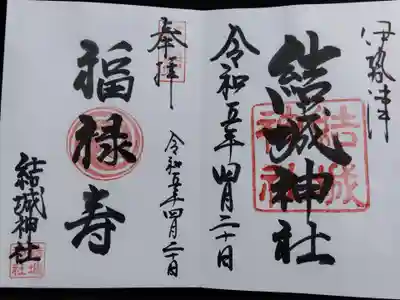 伊勢津
結城神社
結城
神社
令和五年四月二十日
奉拝
令和五年四月二十日
福禄寿
結城神社